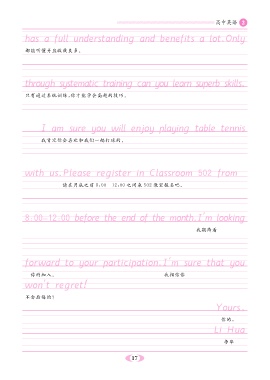 高中英语 2
has a full understanding and benefits a lot.Only
都能听懂并且收获良多。
through systematic training can you learn superb skills.
只有通过系统训练,你才能学会高超的技巧。
I am sure you will enjoy playing table tennis
我肯定你会喜欢和我们一起打球的,
with us.Please register in Classroom 502 from
请在月底之前 8:00—12:00 之间来 502 教室报名吧。
8:00-12:00 before the end of the month.I'm looking
我期待着
forward to your participation.I'm sure that you
你的加入。 我相信你
won't regret!
不会后悔的!
Yours,
你的,
Li Hua
李华
17